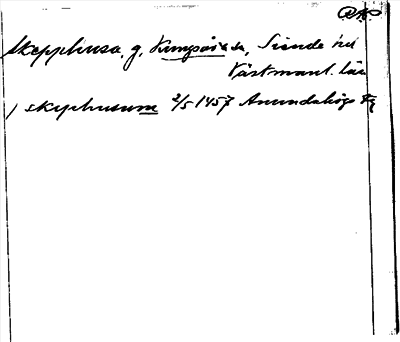 Skepphusa, g. Kungsåra sn, Siende hd
Västmanl. län
) skiphusum 2/5 1457 Anundahögs fg